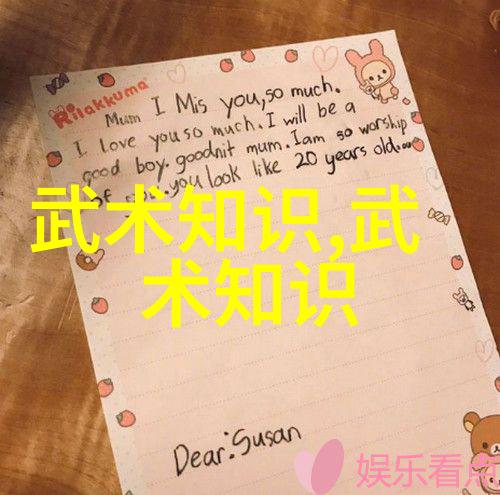 Rilakkuma
Mum I Mis you, so much.
I love you so much. I will be a
good boy. goodnit mum. I am so worship
of you. you look like 20 years old...
武术知识,武
术知识
Dear: Susan
娱乐看点